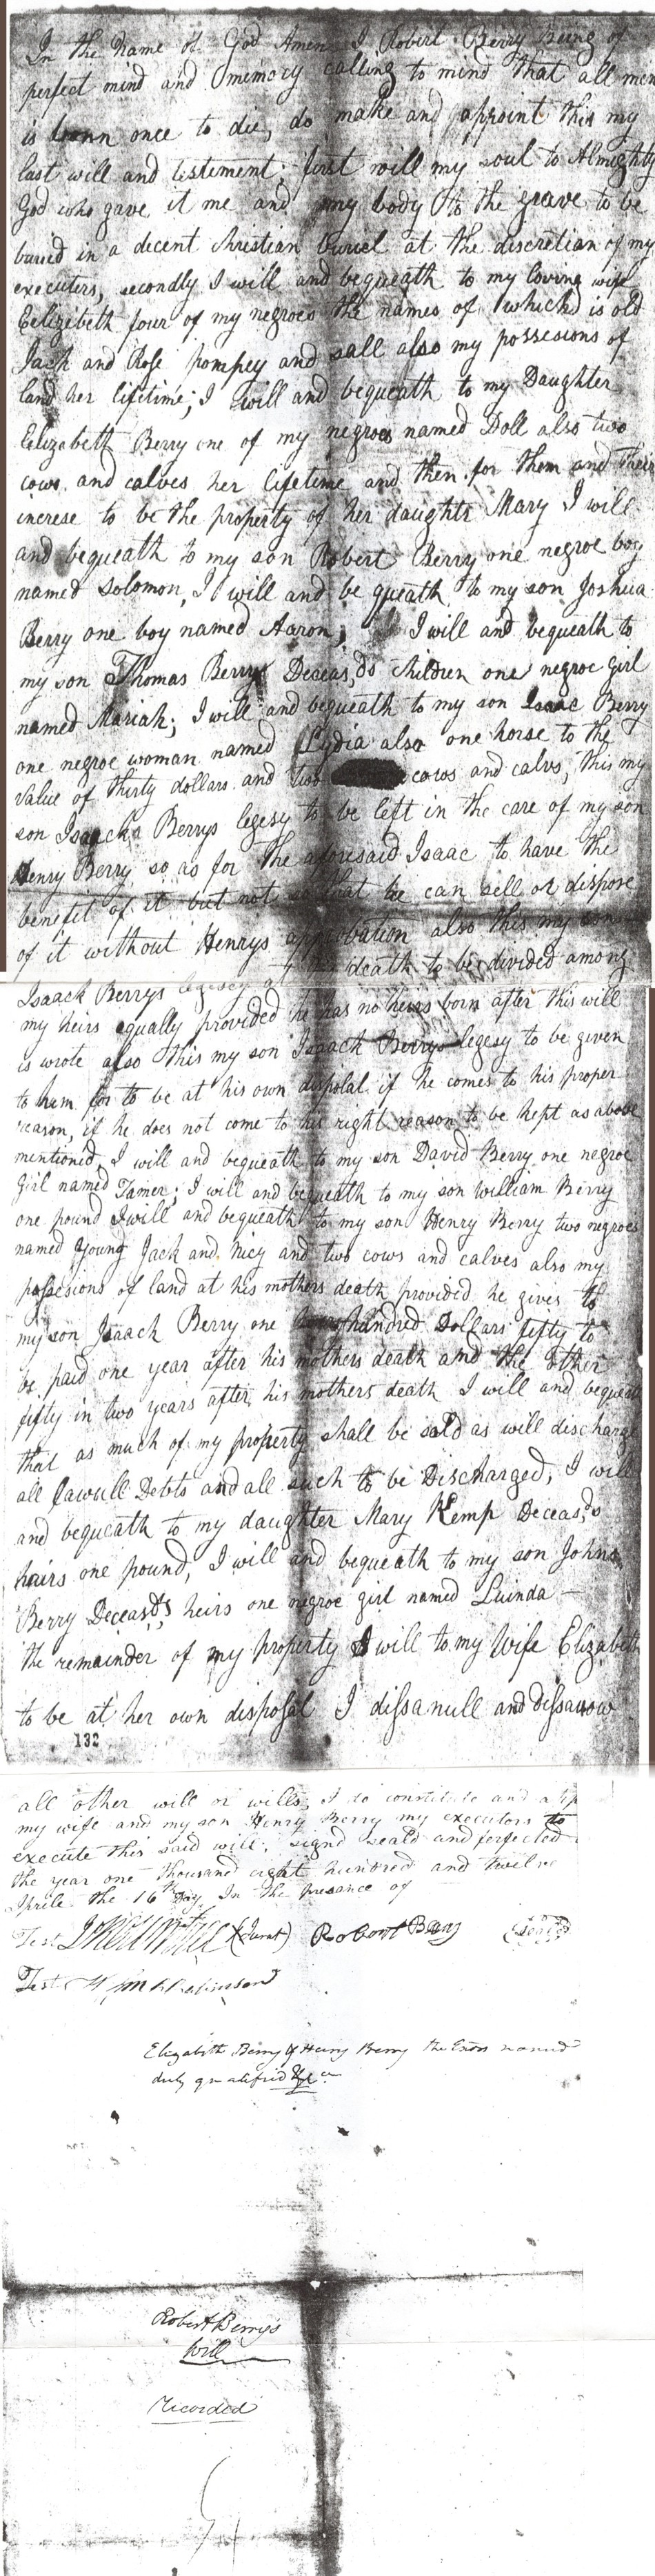 In the Name of God Amen I Robert Berry Being of
perfect mind and memory calling to mind that all men
is born once to die, do make and appoint this my
last will and testiment; first will my soul to Almighty
God who gave it me and my body to the grave to be
buried in a decent christian buriel at the discretian of my
executers, secondly I will and bequeath to my loving wife
Eelizebeth four of my negroes the names of which is old
Jack and Rose pompey and sall also my possesions of
land her lifetime; I will and bequeath to my Daughter
Eelizabeth Berry one of my negroes named Doll also two
cows and calves her lifetime and then for them and their
increse to be the property of her daughtr Mary I will
and bequeath to my son Robert Berry one negroe boy
named Solomon, I will and be queath to my son Joshua
Berry one boy named Aaron; I will and bequeath to
my son Thomas Berrys Deceas,ds children one negroe girl
named Mariah; I will and bequeath to my son Isaac Berry
one negroe woman named Lydia also one horse to the
value of thirty dollars and two cows and calvs; this my
son Isaacks Berrys legesy to be left in the care of my son
Henry Berry so as for the aforesaid Isaac to have the
benefit of it but not so that he can sell or dispose
of it without Henrys approbation also this my son
Isaack Berrys legesy at his death to be divided among
my heirs equally provided he has no heirs born after this will
is wrote also this my son Isaack Berrys legesy to be given
to ham for to be at his own disposal if he comes to his proper
reason, if he does not come to his right reason to be kept as above
mentioned, I will and bequeath to my son David Berry one negroe
girl named Tamer; I will and bequeath to my son William Berry
one pound I will and bequeath to my son Henry Berry two negroes
named Young Jack and Nicy and two cows and calves also my
possesions of land at his mothers death provided he gives to
my son Isaack Berry one hundred Dollars fifty to
be paid one year after his mothers death and the other
fifty in two years after his mothers death I will and bequeath
that as much of my property shall be sold as will discharge
all Lawull Debts and all such to be Discharged; I will
and bequeath to my daughter Mary Kemp Deceas,ds
hairs one pound, I will and bequeath to my son Johns
Berry Deceasds heirs one negroe girl named Luinda —
the remainder of my property I will to my Wife Elizabeth
to be at her own disposal I dissanull and dissanow
132
all other will or wills; I do constitute and
my wife and my son Henry Berry my executors to
execute this said will; signd seald and perfected
the year one thousand eight hundred and twelve
Aprile the 16th Day In the presance of
Test (Jurat) Robert Berry (seal)
Test Wm Robinson
Elizabeth Berry & Henry Berry the Exors named
duly qualified &c
Robert Berry's
Will
Recorded